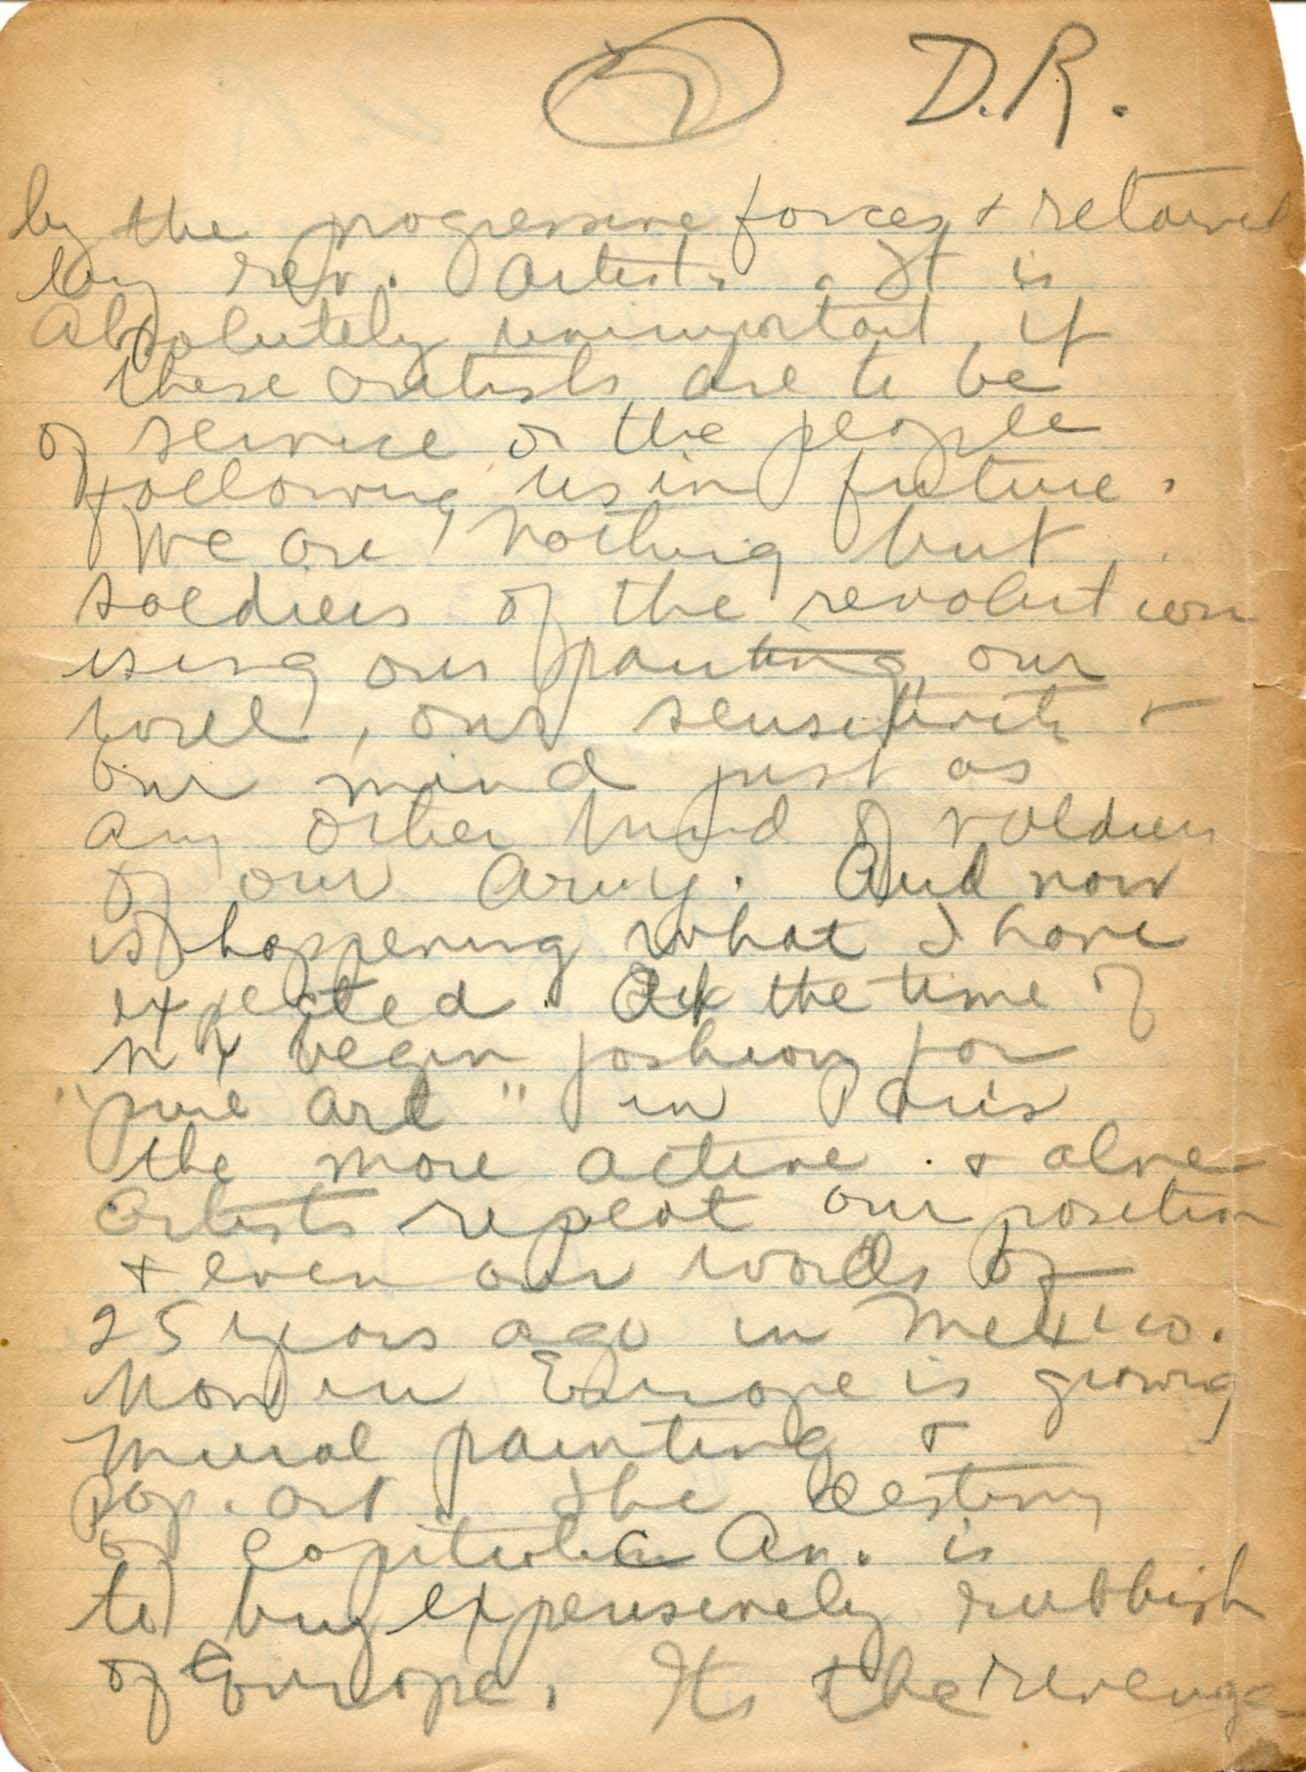 D.R.
by the progressive forces & retained
by rev. artists. It is
absolutely unimportant if
these artists are to be
of service or the people
following us in future.
We are nothing but
soldiers of the revolution
using our painting our
word, our sensitivity &
our mind just as
any other kind of soldiers
of our army. And now
is happening what I have
expected. At the time of
begin fashion for
"pure art" in Paris
the more active & alive
artists repeat our position
& even our words of
25 years ago in Mexico.
Now in Europe is growing
mural painting &
pop. art. The destiny
of Am. is
to buy expensively rubbish
of Europe. Its the revenge